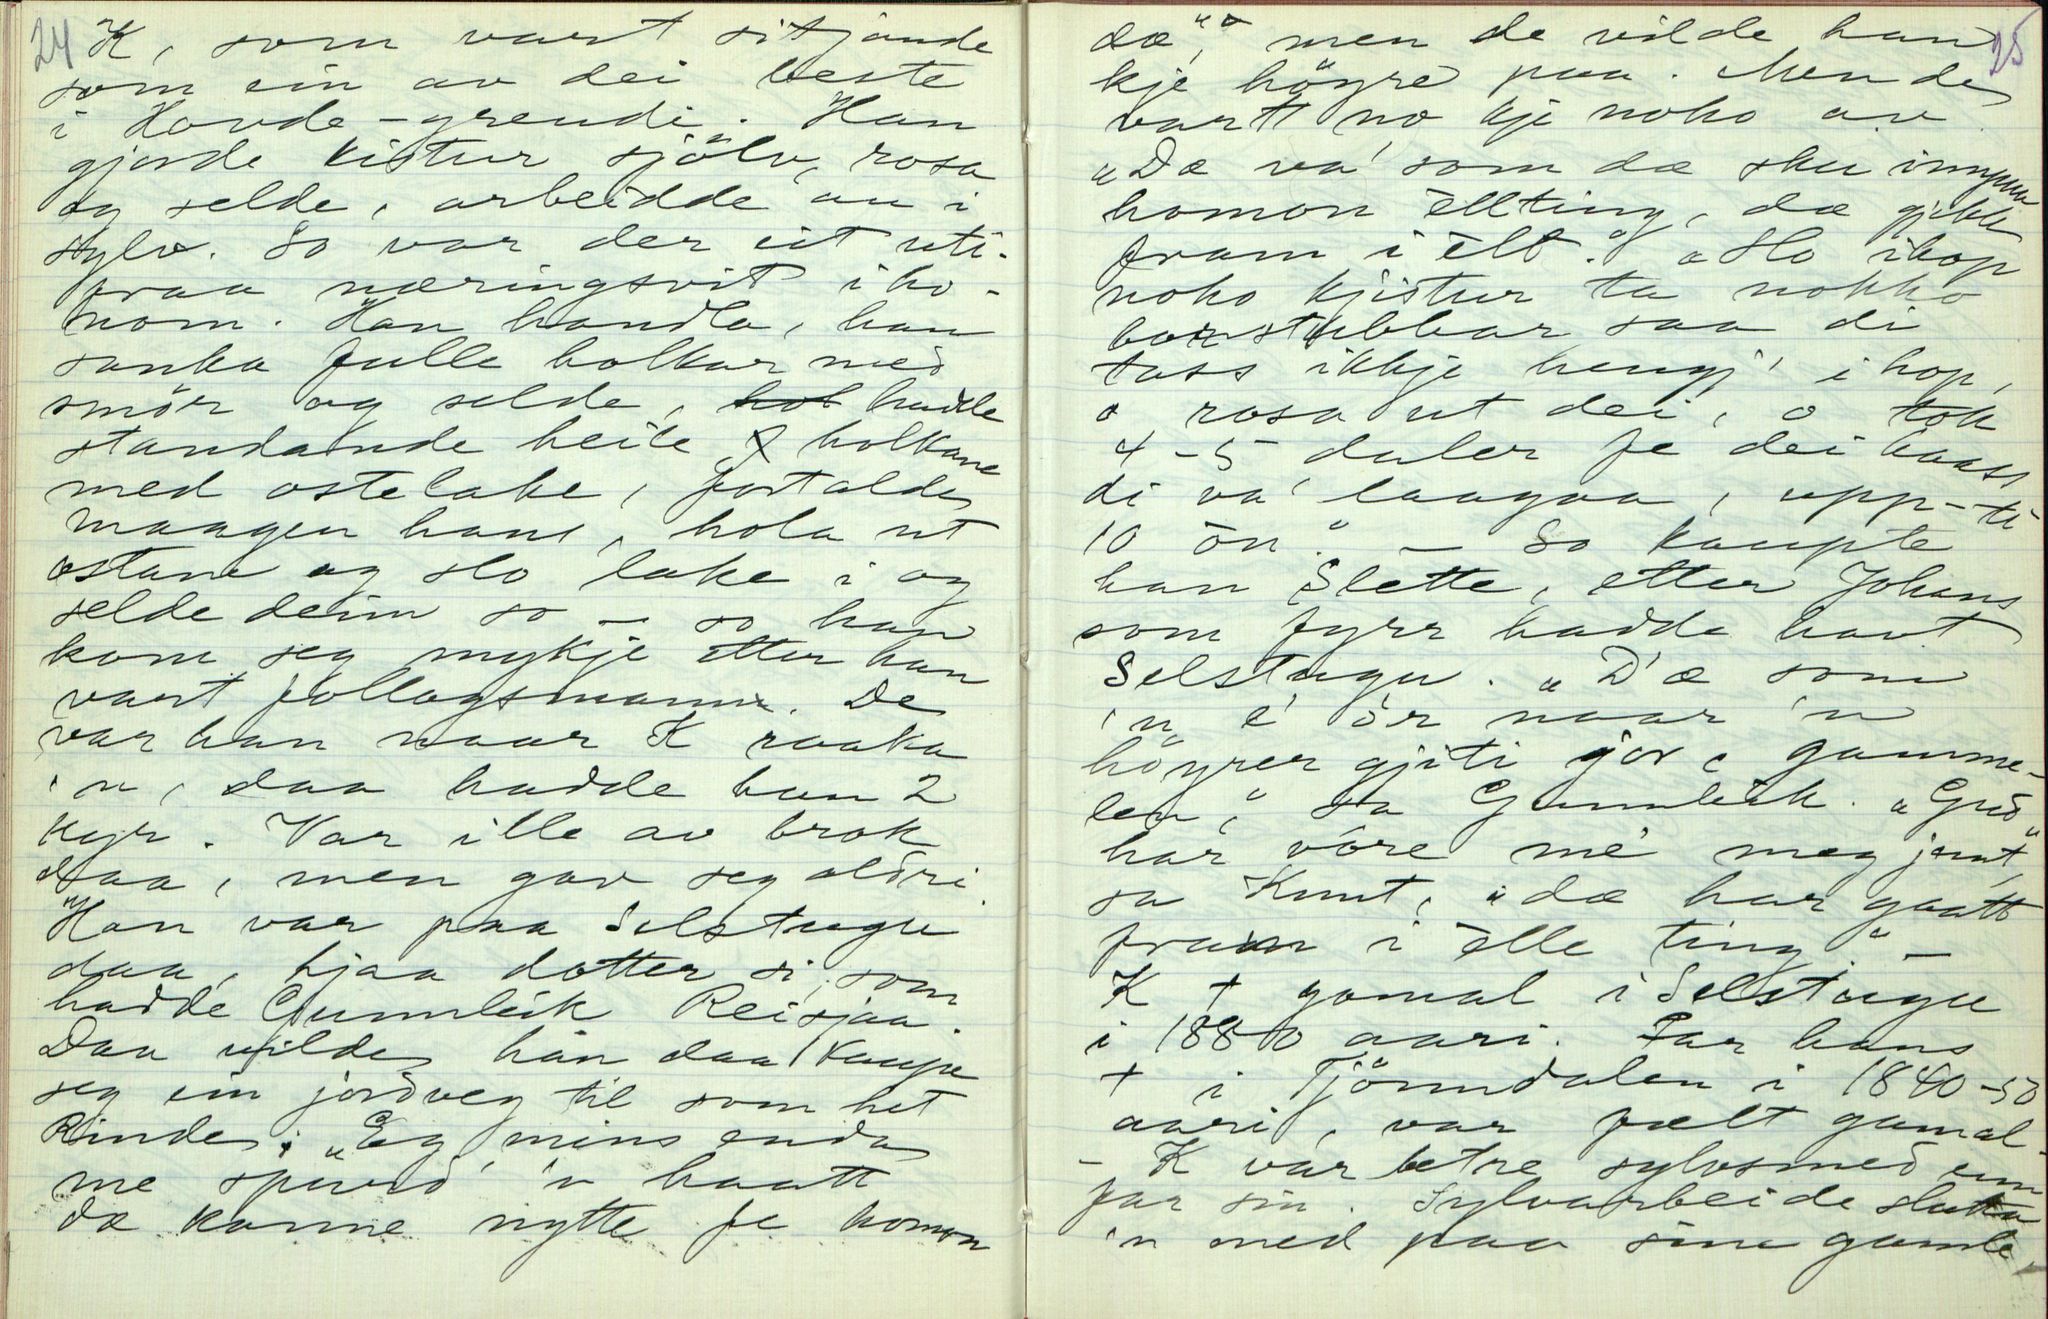 24 K, som vart sitjande
som ein av dei beste
i Hovde-grendi. Han
gjorde kistur sjölv, rosa
og selde, arbeidde au i
sylv. So var der eit uti-
fraa næringsvit i ho-
nom. Han handla, han
sanka fulle holkar med
smör og selde, hol hadde
standande heile holkane
med ostelake, fortalde
maagen hans, hola ut
ostane og slo lake i og
selde deim so – so han
kom seg mykje etter han
vart follagsmann. De
var han naar K raaka
'n, daa hadde han 2
kyr. Var ille av brok
daa, men gav seg aldri.
Han var paa Selstugu
daa, hjaa dotter si, som
hadde Gunnleik Reisjaa.
Daa vilde han daa kaupe
seg ein jordveg til som het
Rinde. "Eg mins enda
me spurd' 'n haatt
dæ kunne nytte fe homon
25
dæ", men de vilde han
kje höyre paa. Men de
vart no kje noko av.
"Dæ va' som dæ sku
homon èllting, dæ gjekk
fram i èlt." "Slo ihop
noko kjistur ta nokko
borstubbar saa di
tass ikkje hengj' i hop,
o rosa ut dei, o tok
4-5 daler fe dei haass
di va' laagaa, upp-ti
10 òn." – So kaupte
han Slette, etter Johans
som fyrr hadde havt
Selstugu. "D'æ som
'n e' ör naar 'n
höyrer gjiti jor, gamme-
len," sa Gunnleik. "Gud
har vóre mé meg jamt,"
sa Knut, "dæ har gaatt
fram i èlle ting." –
K + gamal i Selstugu
i 1880 aari. Far hans
+ i Tjönndalen i 1840-50
aari, var fælt gamal.
– K var betre sylvsmed enn
far sin. Sylvarbeide slutta
'n med paa sine gamle